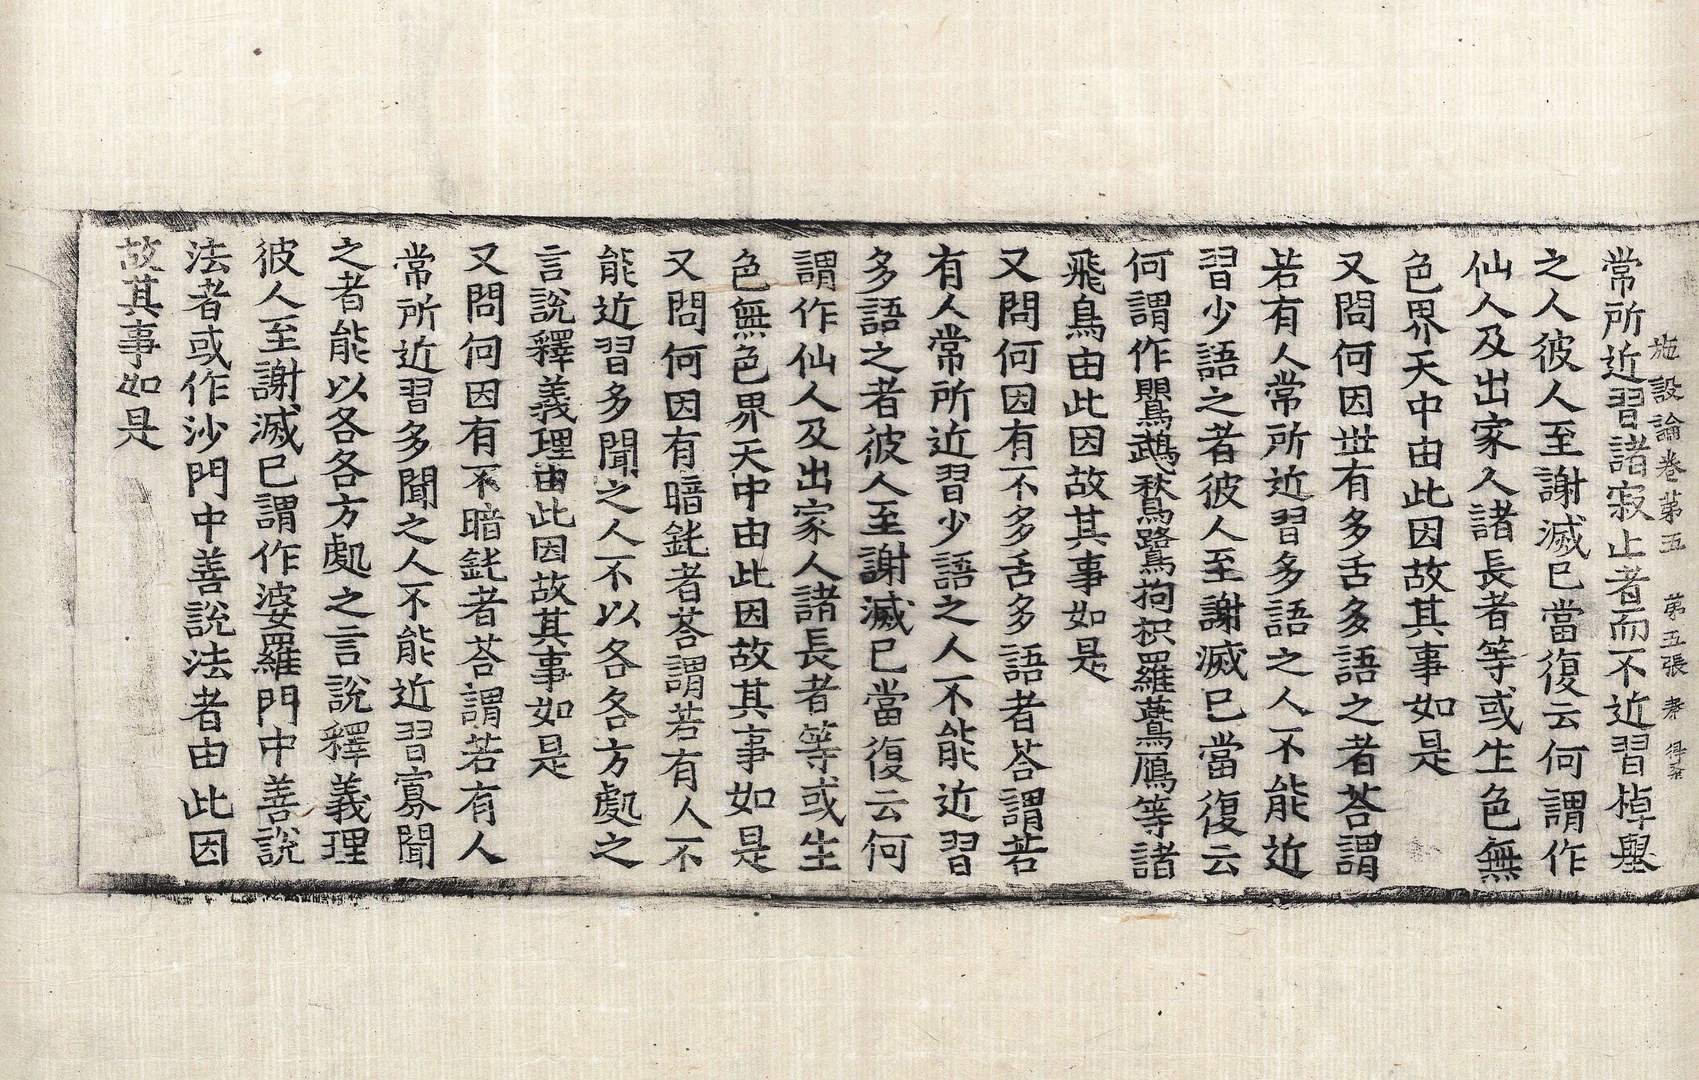 施設論卷第五 第五張
常所近習諸寂止者而不近習掉舉
之人彼人至謝滅已當復云何謂作
仙人及出家人諸長者等或生色無
色界天中由此因故其事如是
又問何因世有多舌多語之者荅謂
若有人常所近習多語之人不能近
習少語之者彼人至謝滅已當復云
何謂作鸎鵡鶖鷺拘枳羅鷰鴈等諸
飛鳥由此因故其事如是
又問何因有不多舌多語者荅謂若
有人常所近習少語之人不能近習
多語之者彼人至謝滅已當復云何
謂作仙人及出家人諸長者等或生
色無色界天中由此因故其事如是
又問何因有暗鈍者荅謂若有人不
能近習多聞之人不以各各方處之
言說釋義理由此因故其事如是
又問何因有不暗鈍者荅謂若有人
常所近習多聞之人不能近習寡聞
之者能以各各方處之言說釋義理
彼人至謝滅已謂作婆羅門中善說
法者或作沙門中善說法者由此因
故其事如是